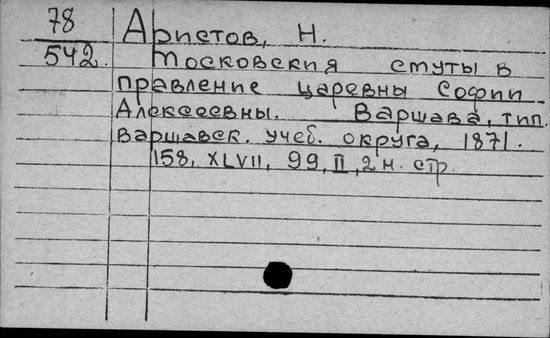 78
542.
Аристов, Н.
Московския смуты в
правление царевны Софии
Алексеевны. Варшава, тип.
Варшавск. учеб. округа, 1871.
158, XLVII, 99, II, 2 н. стр.